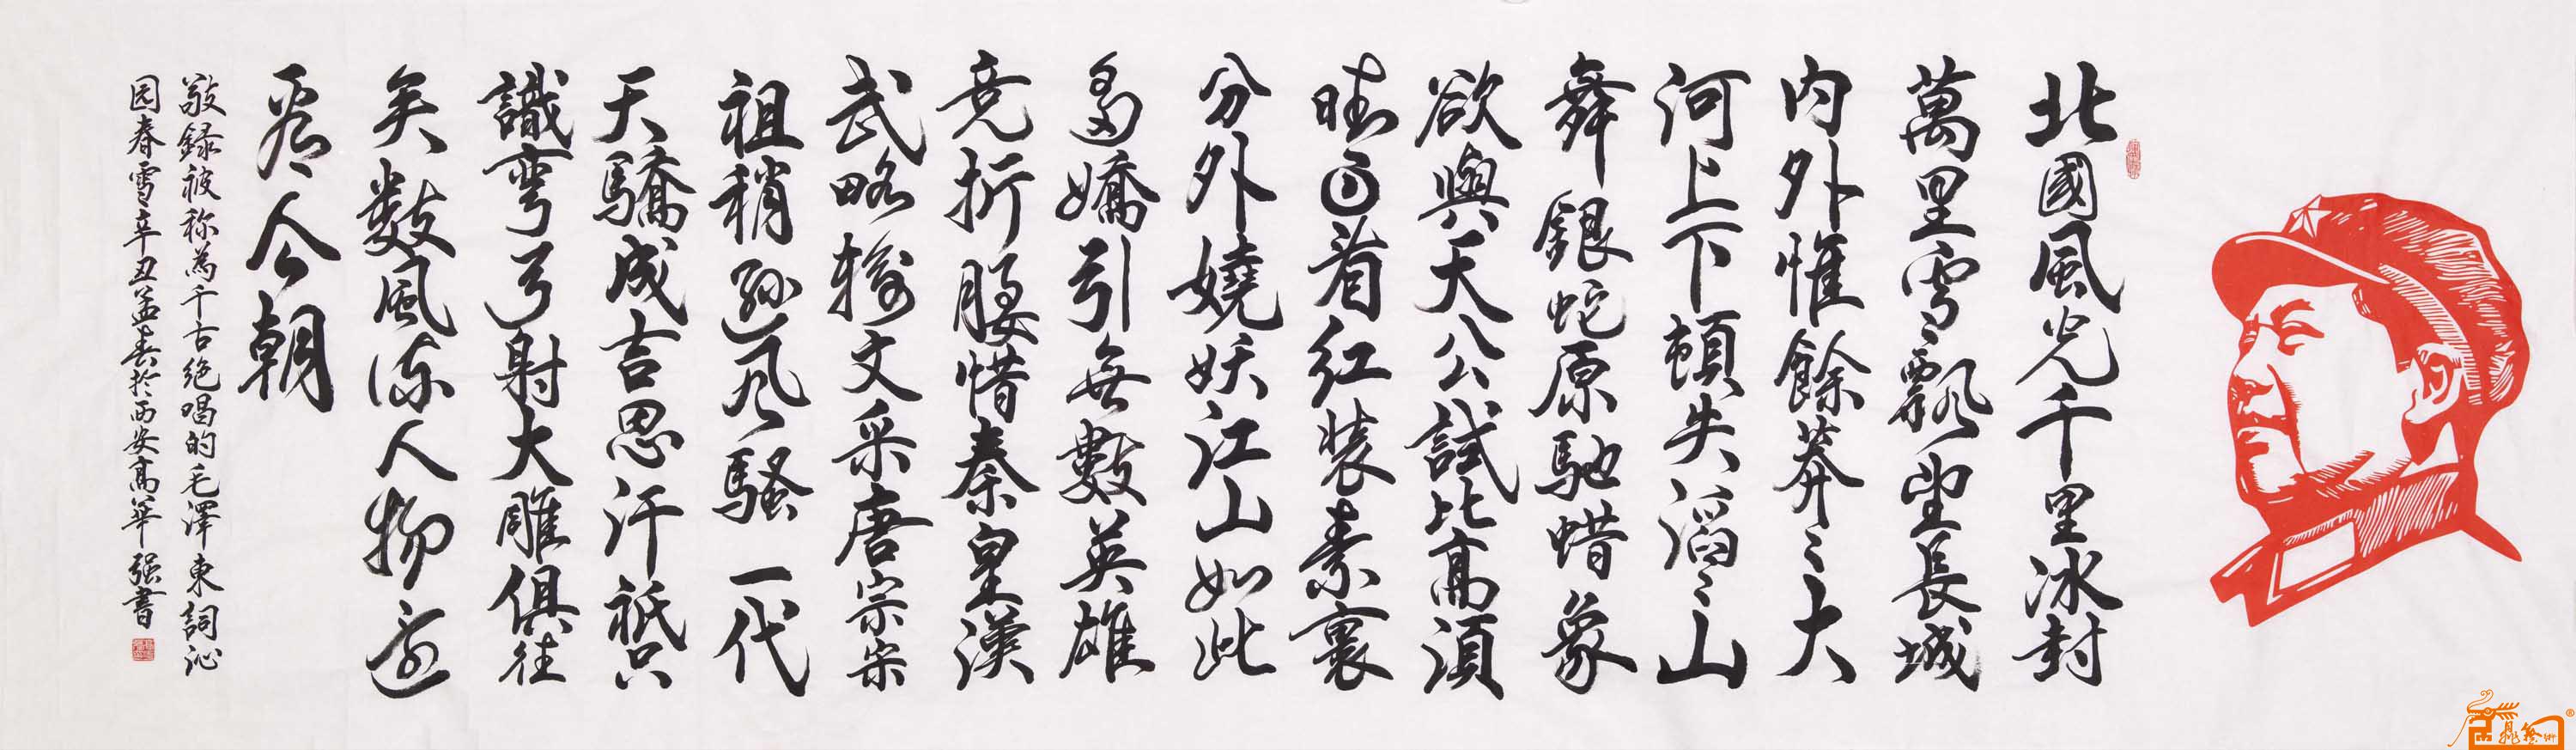 北國風光千里冰封
萬里雪飄望長城
内外惟餘莽〻大
河上下頓失滔〻山
舞銀蛇原馳蜡象
欲與天公試比高須
晴日看红装素裹
分外嬈妖江山如此
多嬌引無數英雄
竞折腰惜秦皇漢
武略输文采唐宗宋
祖稍逊风騷一代
天驕成吉思汗祗只
識弯弓射大雕俱往
矣数風流人物还
看今朝
敬録被称為千古绝唱的毛澤東詞沁
园春雪辛丑孟春於西安高華强書